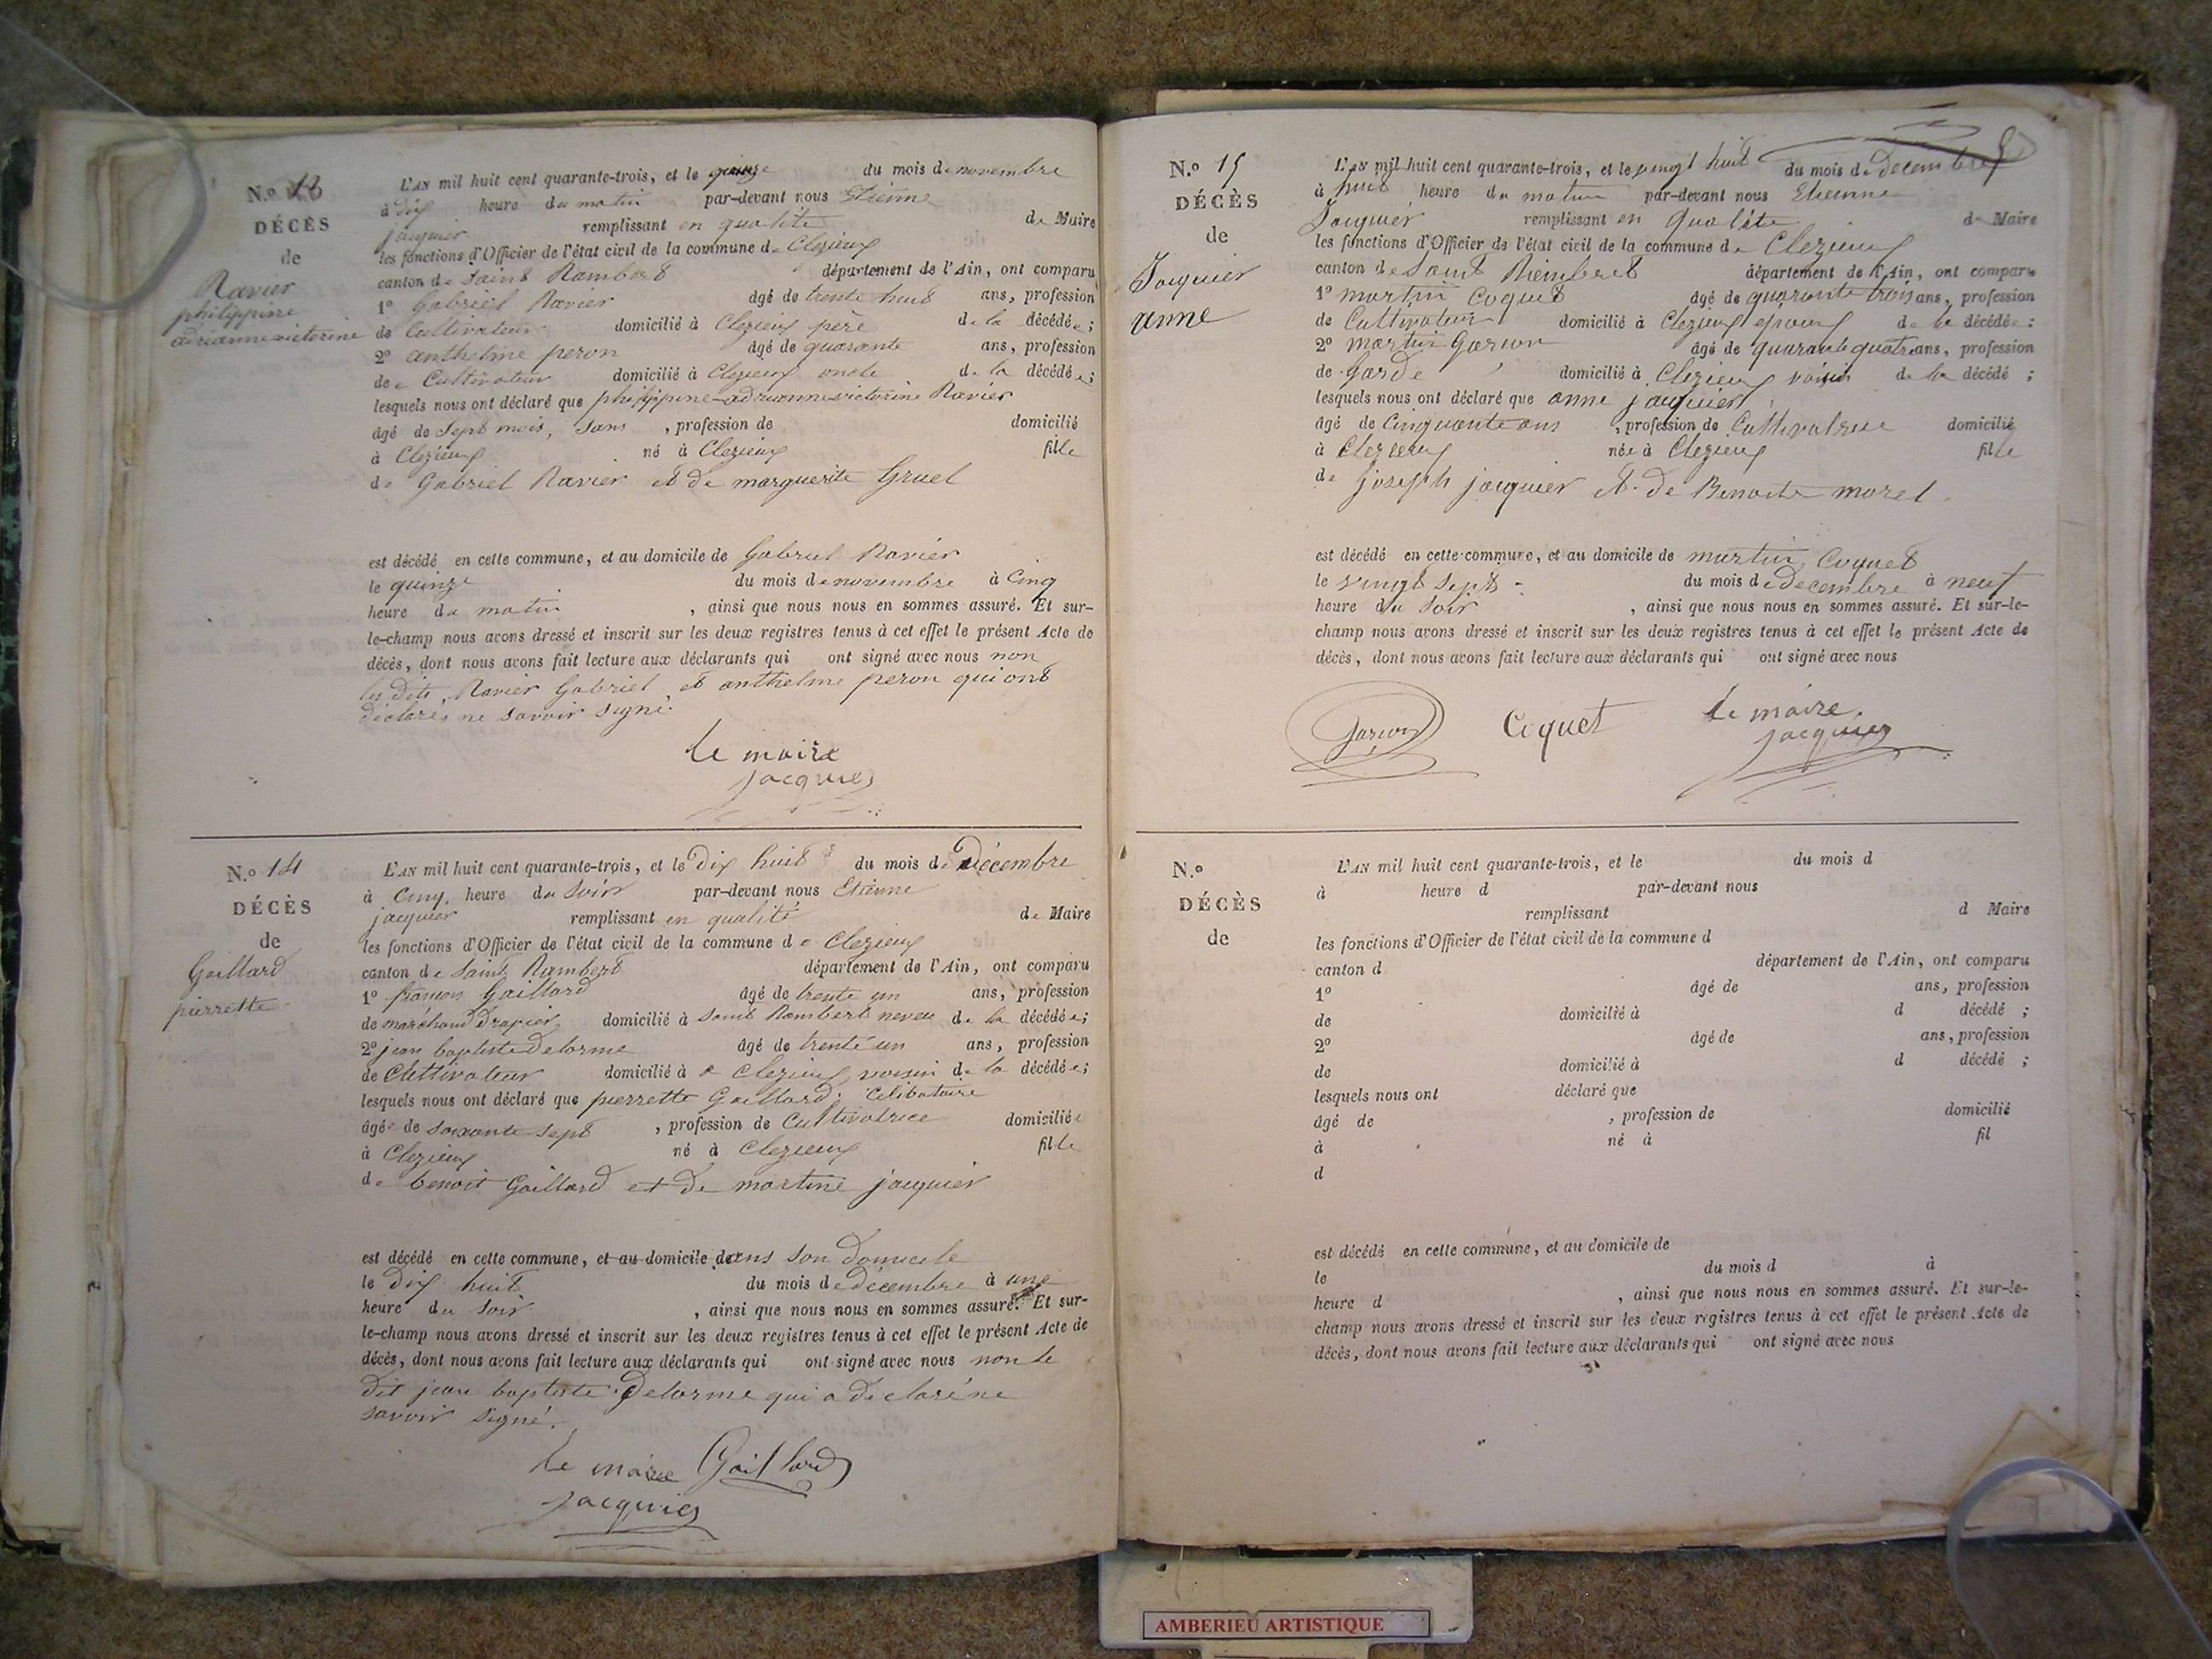 N.o 13
DÉCÈS
de
Ravier
philippine
adrianne victorine
L'AN mil huit cent quarante-trois, et le quinze du mois de novembre
à dix heure du matin par-devant nous Etienne
jacquier remplissant en qualité de Maire
les fonctions d'Officier de l'état civil de la commune de Clezieux
canton de Saint Rambert département de l'Ain, ont comparu
1° Gabriel Ravier âgé de trente huit ans, profession
de Cultivateur domicilié à Clezieux père de la décédée;
2° anthelme peron âgé de quarante ans, profession
de Cultivateur domicilié à Clezieux oncle de la décédée;
lesquels nous ont déclaré que philippine adrianne victorine Ravier
âgé de Sept mois, Sans , profession de domicilié
à Clezieux né à Clezieux fille
de Gabriel Ravier et de marguerite Gruel
est décédé en cette commune, et au domicile de Gabriel Ravier
le quinze du mois de novembre à Cinq
heure du matin , ainsi que nous nous en sommes assuré. Et sur-
le-champ nous avons dressé et inscrit sur les deux registres tenus à cet effet le présent Acte de
décès, dont nous avons fait lecture aux déclarants qui ont signé avec nous non
les dits Ravier Gabriel et anthelme peron qui ont
déclarés ne savoir signé.
Le maire
jacquier
N.o 14
DÉCÈS
de
Gaillard
pierrette
L'AN mil huit cent quarante-trois, et le Dix huit du mois de Décembre
à Cinq heure du Soir par-devant nous Etienne
jacquier remplissant en qualité de Maire
les fonctions d'Officier de l'état civil de la commune de Clezieux
canton de Saint Rambert département de l'Ain, ont comparu
1° françois Gaillard âgé de trente un ans, profession
de maréchand Drapier domicilié à Saint Rambert neveu de la décédée;
2° jean baptiste Delorme âgé de trente un ans, profession
de Clettivateur domicilié à a Clezieux voisin de la décédée;
lesquels nous ont déclaré que pierrette Gaillard, Celibataire
âgée de Soixante Sept , profession de Cultivatrice domiciliée
à Clezieux né à Clezieux fille
de benoit Gaillard et de martine jacquier
est décédé en cette commune, et au domicile dans Son Domicile
le Dix huit du mois de décembre à une
heure du Soir , ainsi que nous nous en sommes assuré. Et sur-
le-champ nous avons dressé et inscrit sur les deux registres tenus à cet effet le présent Acte de
décès, dont nous avons fait lecture aux déclarants qui ont signé avec nous non le
Dit jean baptiste Delorme qui a déclaré ne
Savoir Signé.
Le maire Gaillard
jacquier
N.o 15
DÉCÈS
de
Jacquier
anne
L'AN mil huit cent quarante-trois, et le vingt huit du mois de Decembre
à huit heure du matin par-devant nous Etienne
Jacquier remplissant en Qualité de Maire
les fonctions d'Officier de l'état civil de la commune de Clezieux
canton de Saint Rembert département de l'Ain, ont comparu
1° martin Coquet âgé de quarante trois ans, profession
de Cultivateur domicilié à Clezieux epoux de la décédée:
2° martin Garion âgé de quarante quatre ans, profession
de Garde domicilié à Clezieux voisin de la décédé ;
lesquels nous ont déclaré que anne jacquier
âgé de Cinquante ans , profession de Cultivatrice domicilié
à Clezieux née à Clezieux fille
de joseph jacquier et de Benoite morel
est décédé en cette commune, et au domicile de martin Coquet
le vingt Sept du mois de decembre à neuf
heure du Soir , ainsi que nous nous en sommes assuré. Et sur-le-
champ nous avons dressé et inscrit sur les deux registres tenus à cet effet le présent Acte de
décès, dont nous avons fait lecture aux déclarants qui ont signé avec nous
Garion Coquet Le maire
jacquier
N.o
DÉCÈS
de
L'AN mil huit cent quarante-trois, et le du mois d
à heure d par-devant nous
remplissant d Maire
les fonctions d'Officier de l'état civil de la commune d
canton d département de l'Ain, ont comparu
1° âgé de ans, profession
de domicilié à d décédé ;
2° âgé de ans, profession
de domicilié à d décédé ;
lesquels nous ont déclaré que
âgé de , profession de domicilié
à né à fil
d
est décédé en cette commune, et au domicile de
le du mois d à
heure d , ainsi que nous nous en sommes assuré. Et sur-le-
champ nous avons dressé et inscrit sur les deux registres tenus à cet effet le présent Acte de
décès, dont nous avons fait lecture aux déclarants qui ont signé avec nous
AMBERIEU ARTISTIQUE